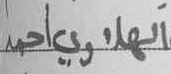 الهلاوي احمد